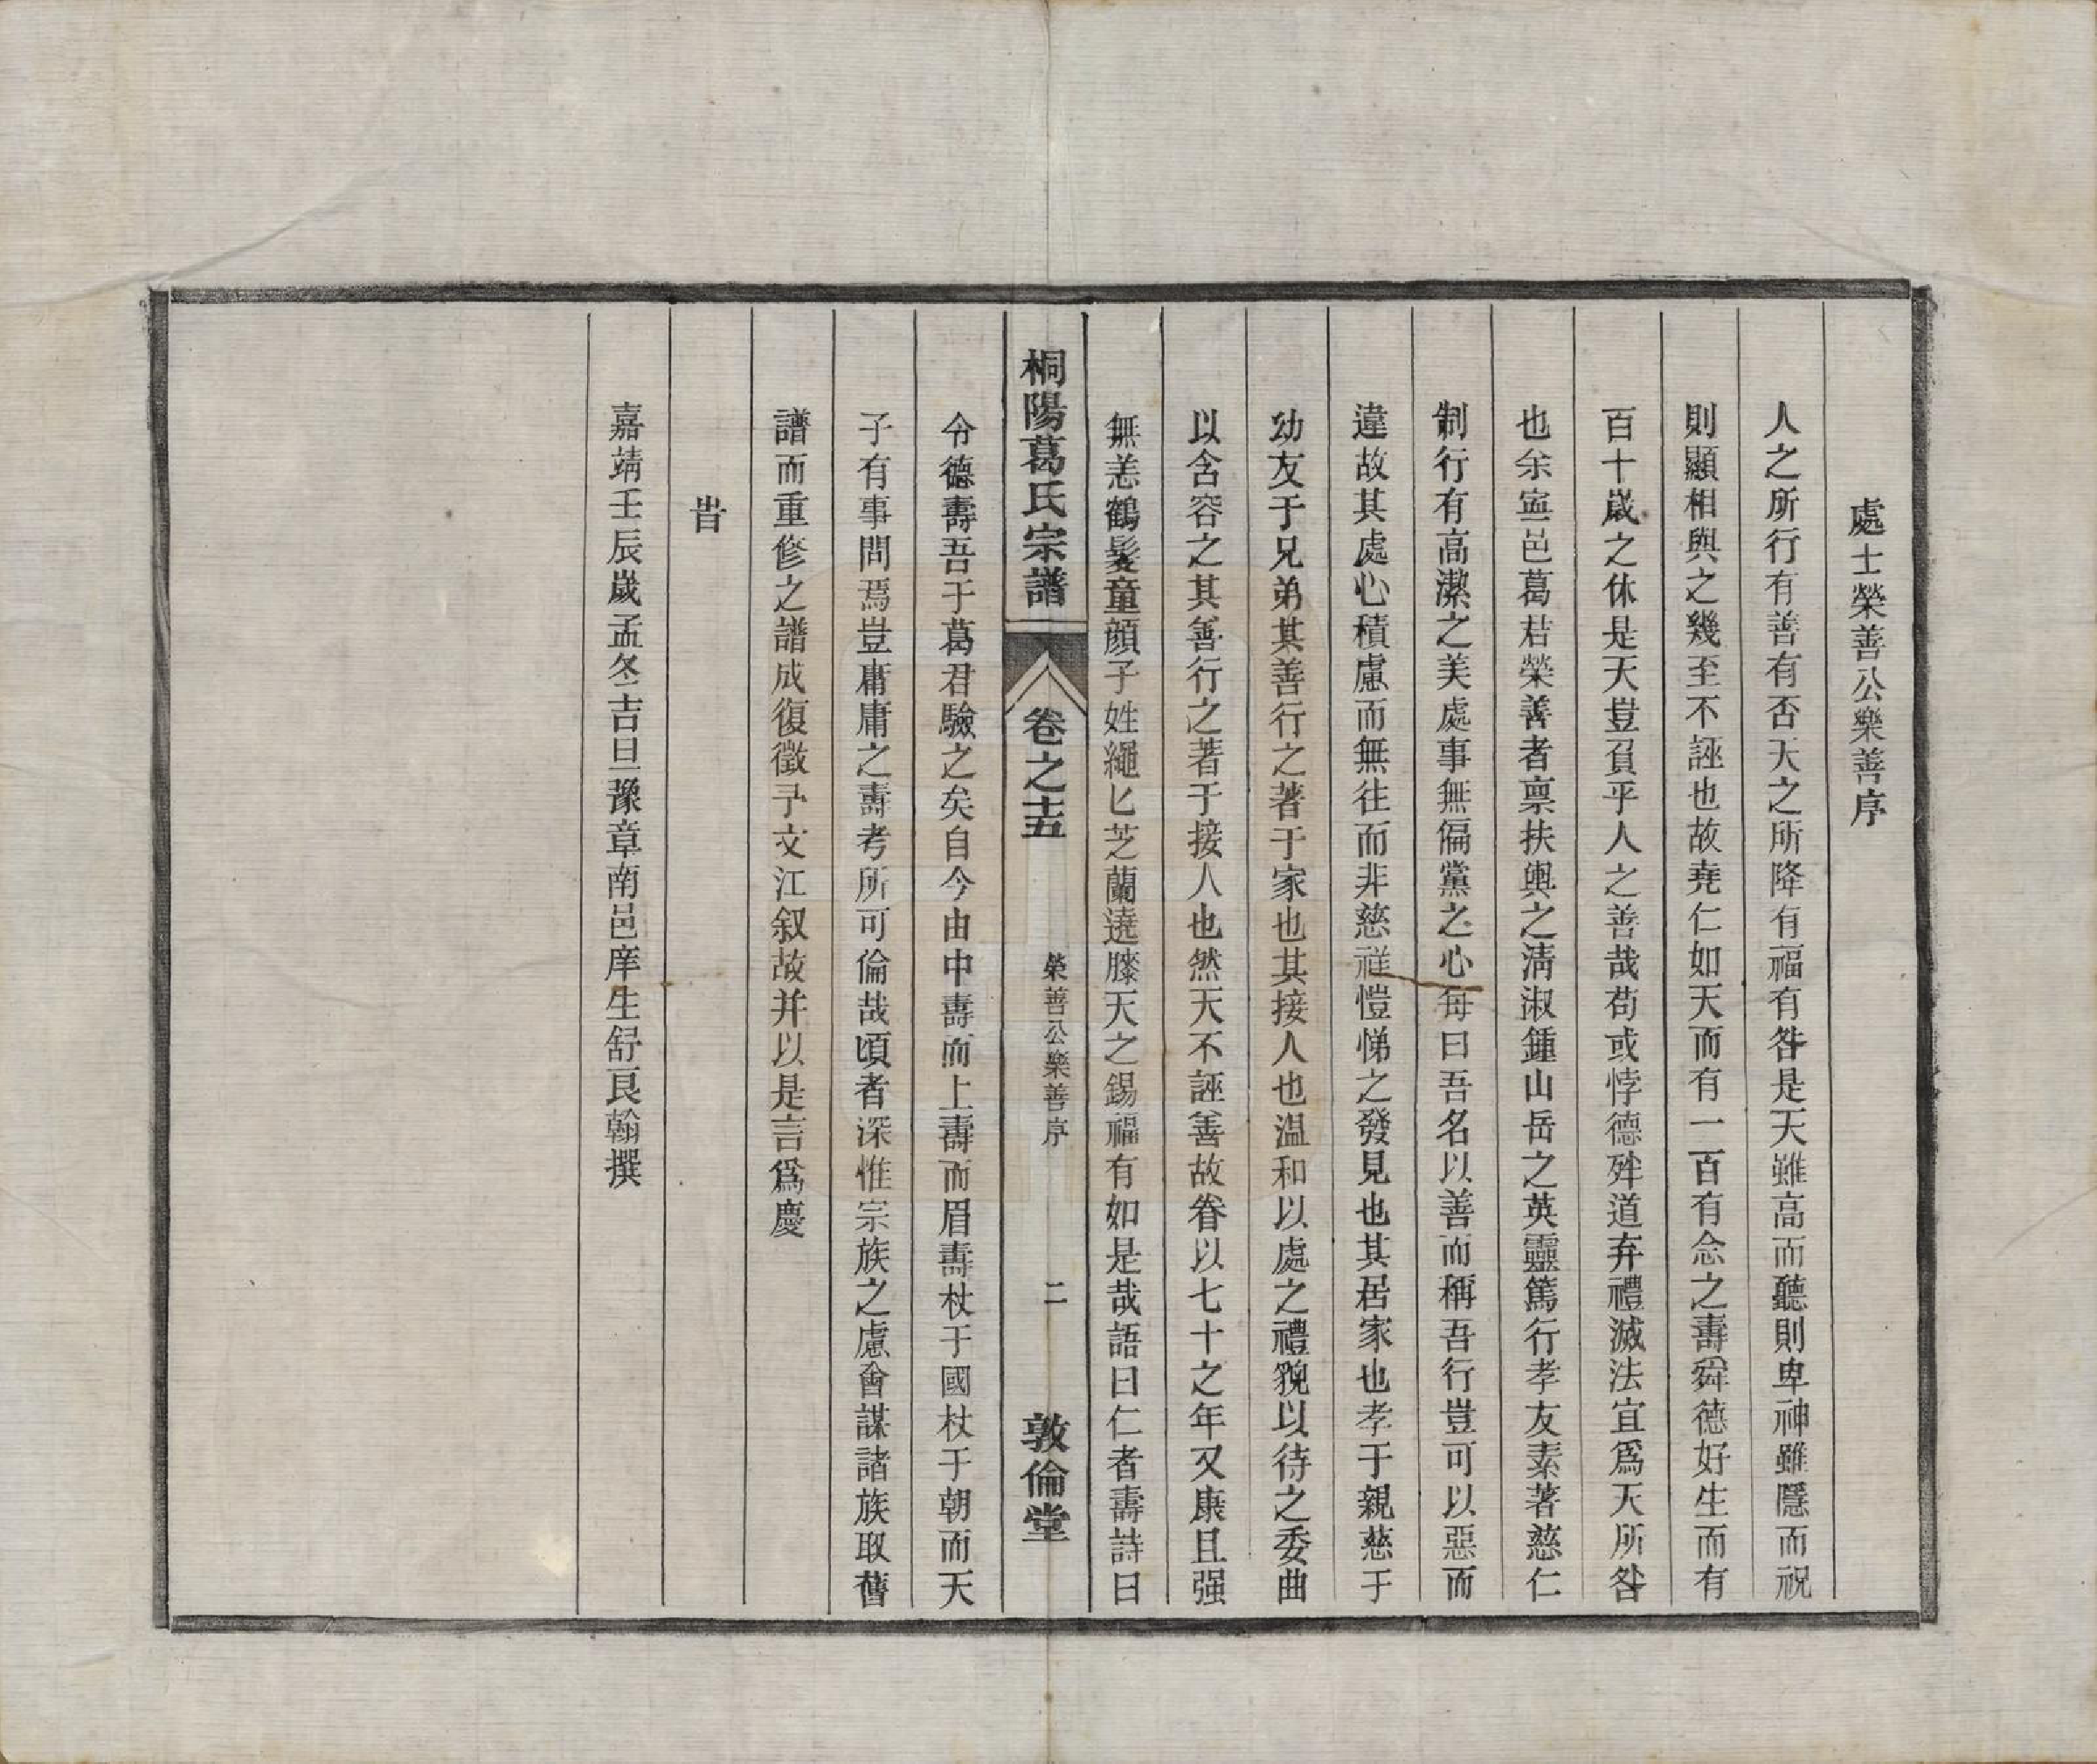 處士榮善公樂善序
人之所行有善有否天之所降有福有咎是天雖高而聽則卑神雖隱而視
則顯相與之幾至不誣也故堯仁如天而有一百有念之壽舜德好生而有
百十歲之休是天豈負乎人之善哉苟或悖德舛道弃禮滅法宜爲天所咎
也余寧邑葛君榮善者禀扶輿之淸淑鍾山岳之英靈篤行孝友素著慈仁
制行有高潔之美處事無偏黨之心每曰吾名以善而稱吾行豈可以惡而
違故其處心積慮而無往而非慈祥愷悌之發見也其居家也孝于親慈于
幼友于兄弟其善行之著于家也其接人也温和以處之禮貌以待之委曲
以含容之其善行之著于接人也然天不誣善故眷以七十之年又康且强
無恙鶴髮童顔子姓繩匕芝蘭遶膝天之錫福有如是哉語曰仁者壽詩曰
桐陽葛氏宗譜 卷之十五 榮善公樂善序 二 敦倫堂
令德壽吾于葛君驗之矣自今由中壽而上壽而眉壽杖于國杖于朝而天
子有事問焉豈庸庸之壽考所可倫哉頃者深惟宗族之慮會謀諸族取舊
譜而重修之譜成復徵予文江叙故并以是言爲慶
旹
嘉靖壬辰歲孟冬吉旦豫章南邑庠生舒良翰撰